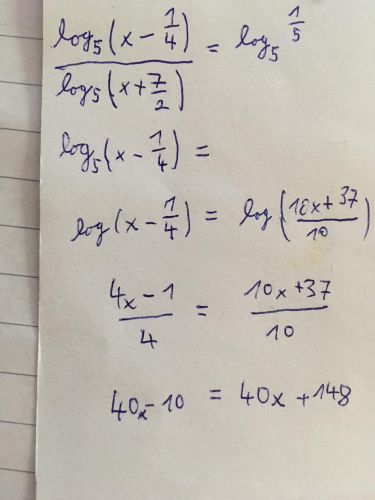 log₅(x - 1/4) / log₅(x + 7/2) = log₅ 1/5
log₅(x - 1/4) =
log(x - 1/4) = log(10x + 37 / 10)
4x - 1 / 4 = 10x + 37 / 10
40x - 10 = 40x + 148